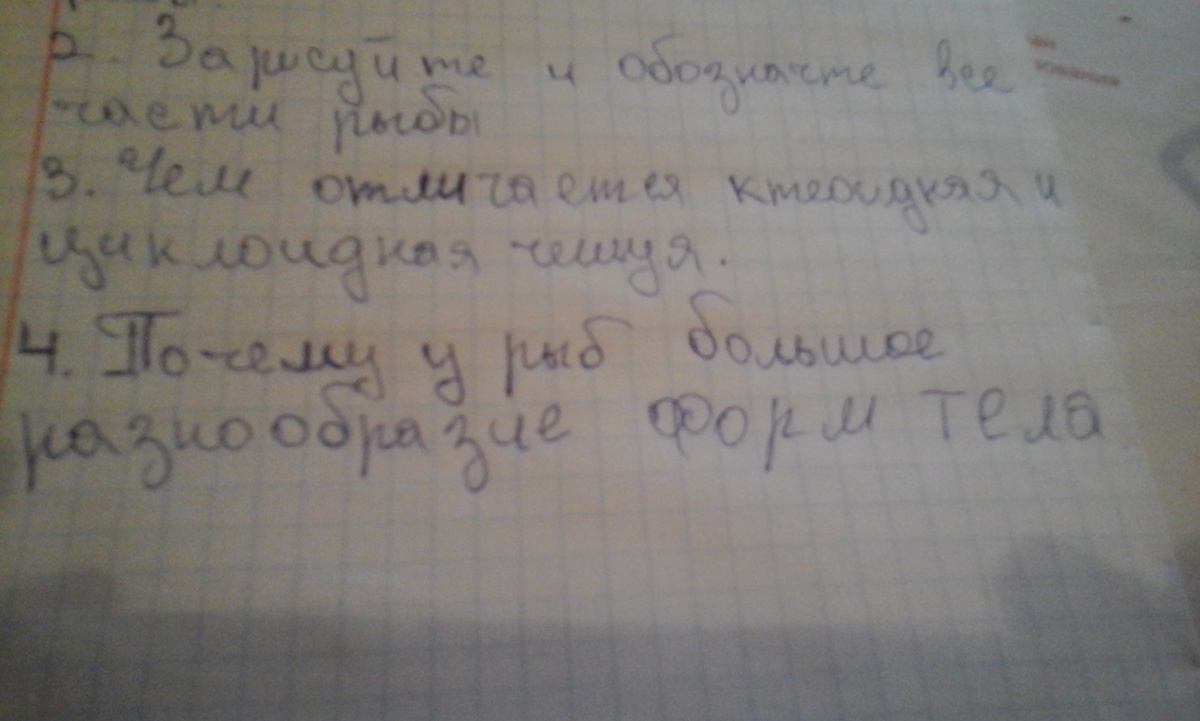 2. Зарисуйте и обозначте все
части рыбы
3. Чем отличается ктеоидная и
циклоидная чешуя.
4. Почему у рыб большое
разнообразие форм тела